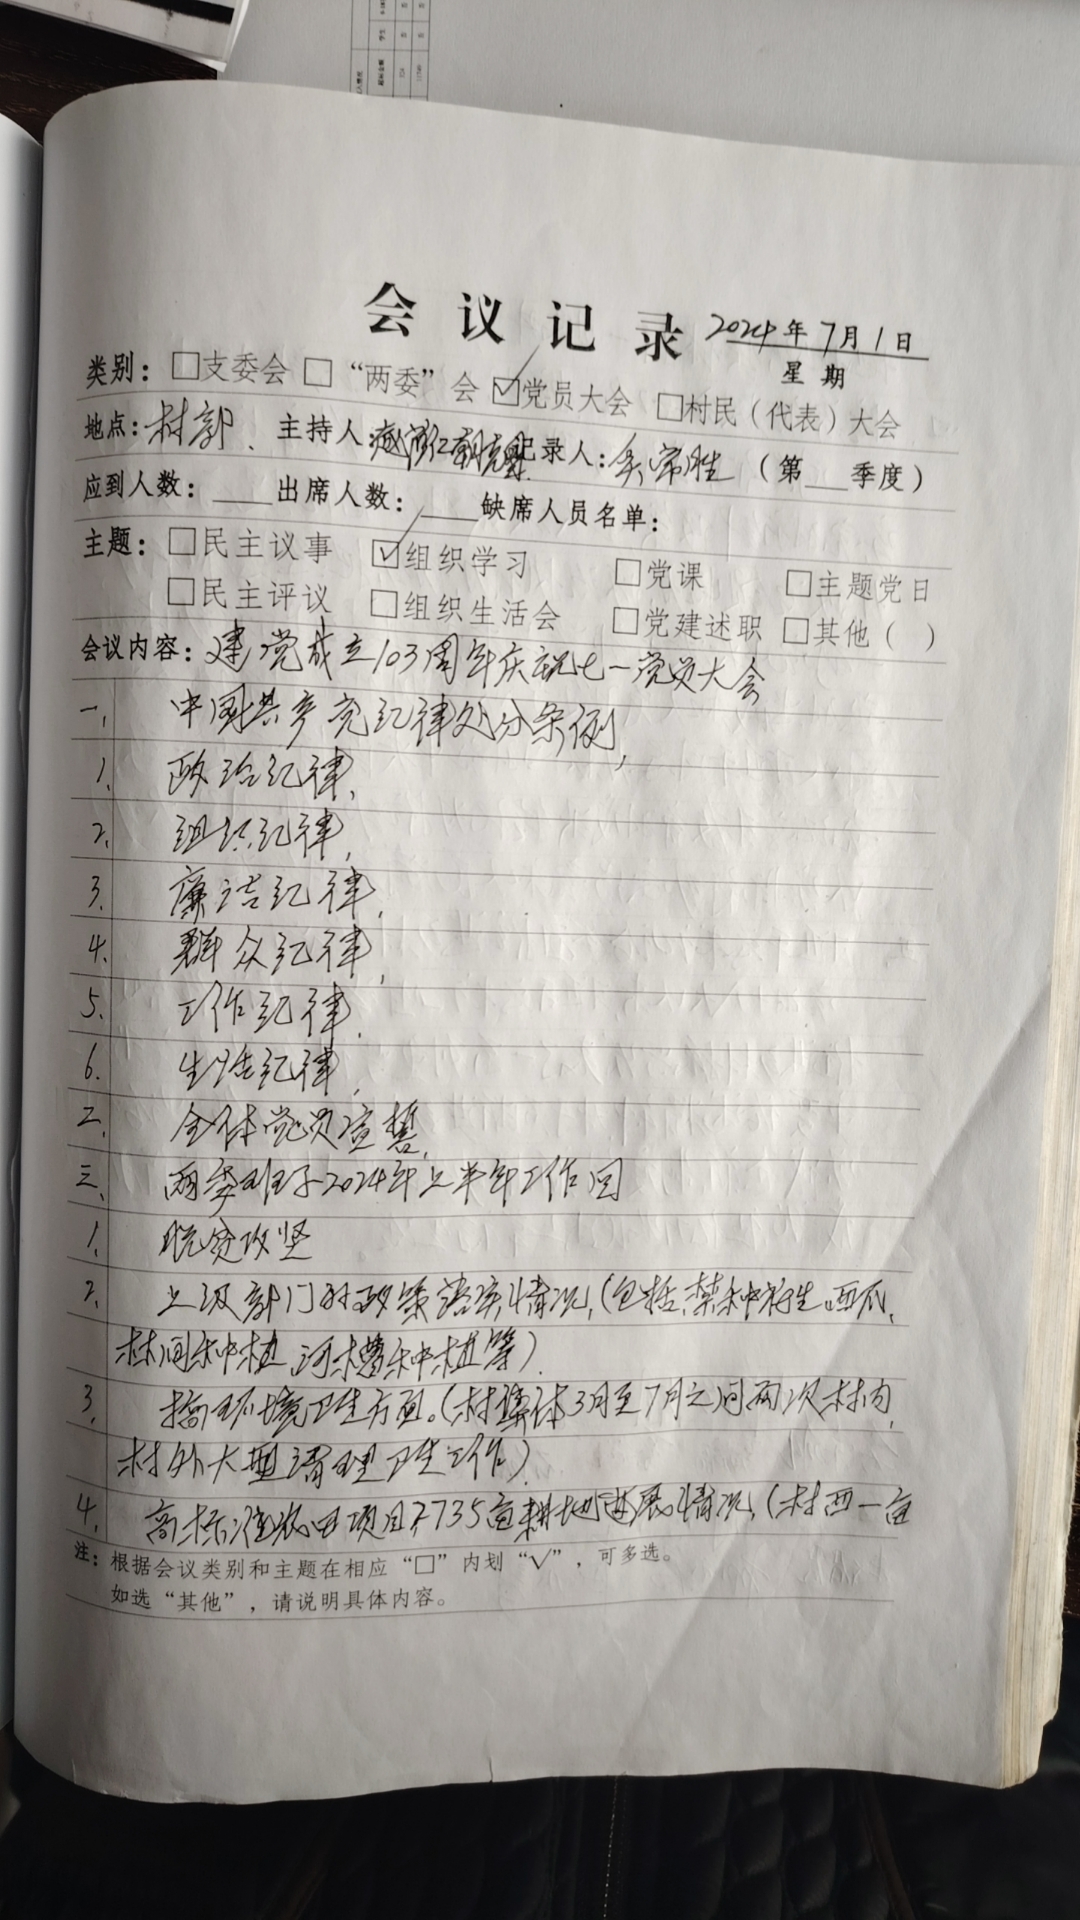 会议记录
2024年7月1日
星期
类别：☐支委会 ☐“两委”会 ☑党员大会 ☐村民（代表）大会
地点：村部、 主持人： 记录人：吴常胜 （第___季度）
应到人数：____出席人数：____缺席人员名单：
主题：☐民主议事 ☑组织学习 ☐党课 ☐主题党日
☐民主评议 ☐组织生活会 ☐党建述职 ☐其他（ ）
会议内容：建党成立103周年庆祝七一党员大会
一、中国共产党纪律处分条例，
1、政治纪律，
2、组织纪律，
3、廉洁纪律，
4、群众纪律，
5、工作纪律，
6、生活纪律，
二、全体党员宣誓，
三、两委班子2024年上半年工作回
1、脱贫攻坚
2、上级部门对政策落实情况，（包括，禁种 西瓜，
林间种植，河槽种植等）
3、搞环境卫生方面。（村集体3月至7月之间两次村内，
村外大型清理卫生工作）
4、高标准农田项目7735亩耕地进展情况，（村西一亩
注：根据会议类别和主题在相应“☐”内划“√”，可多选。
如选“其他”，请说明具体内容。